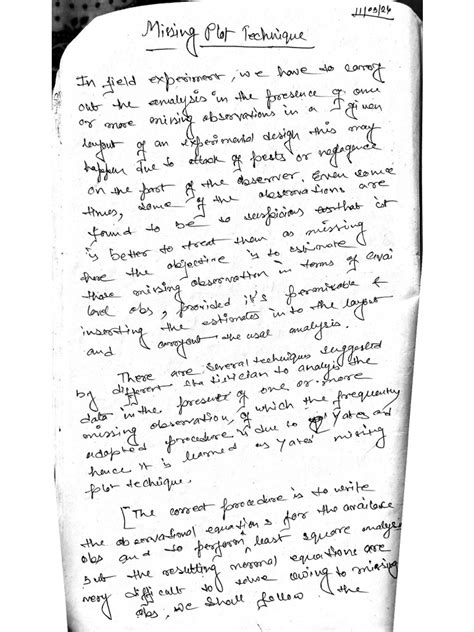 11/03/24
Missing Plot Technique
In field experiment, we have to carry
out the analysis in the presence of one
or more missing observations in a given
layout of an experimental design this may
happen due to attack of pests or negligence
on the part of the observer. Even some
times, some of the observations are
found to be so suspicious that it
is better to treat them as missing
here the objective is to estimate
those missing observation in terms of
level obs, provided it's permissible &
inserting the estimates in to the layout
and carryout the usual analysis.
There are several techniques suggested
by different statistician to analysis the
data in the presence of one or more
missing observation, of which the frequently
adopted procedure is due to Yates and
hence it is learned as Yates' missing
plot technique.
[The correct procedure is to write
the observational equations for the available
obs and to perform least square analysis
but the resulting normal equations are
very difficult to solve owing to missing
obs, we shall follow the